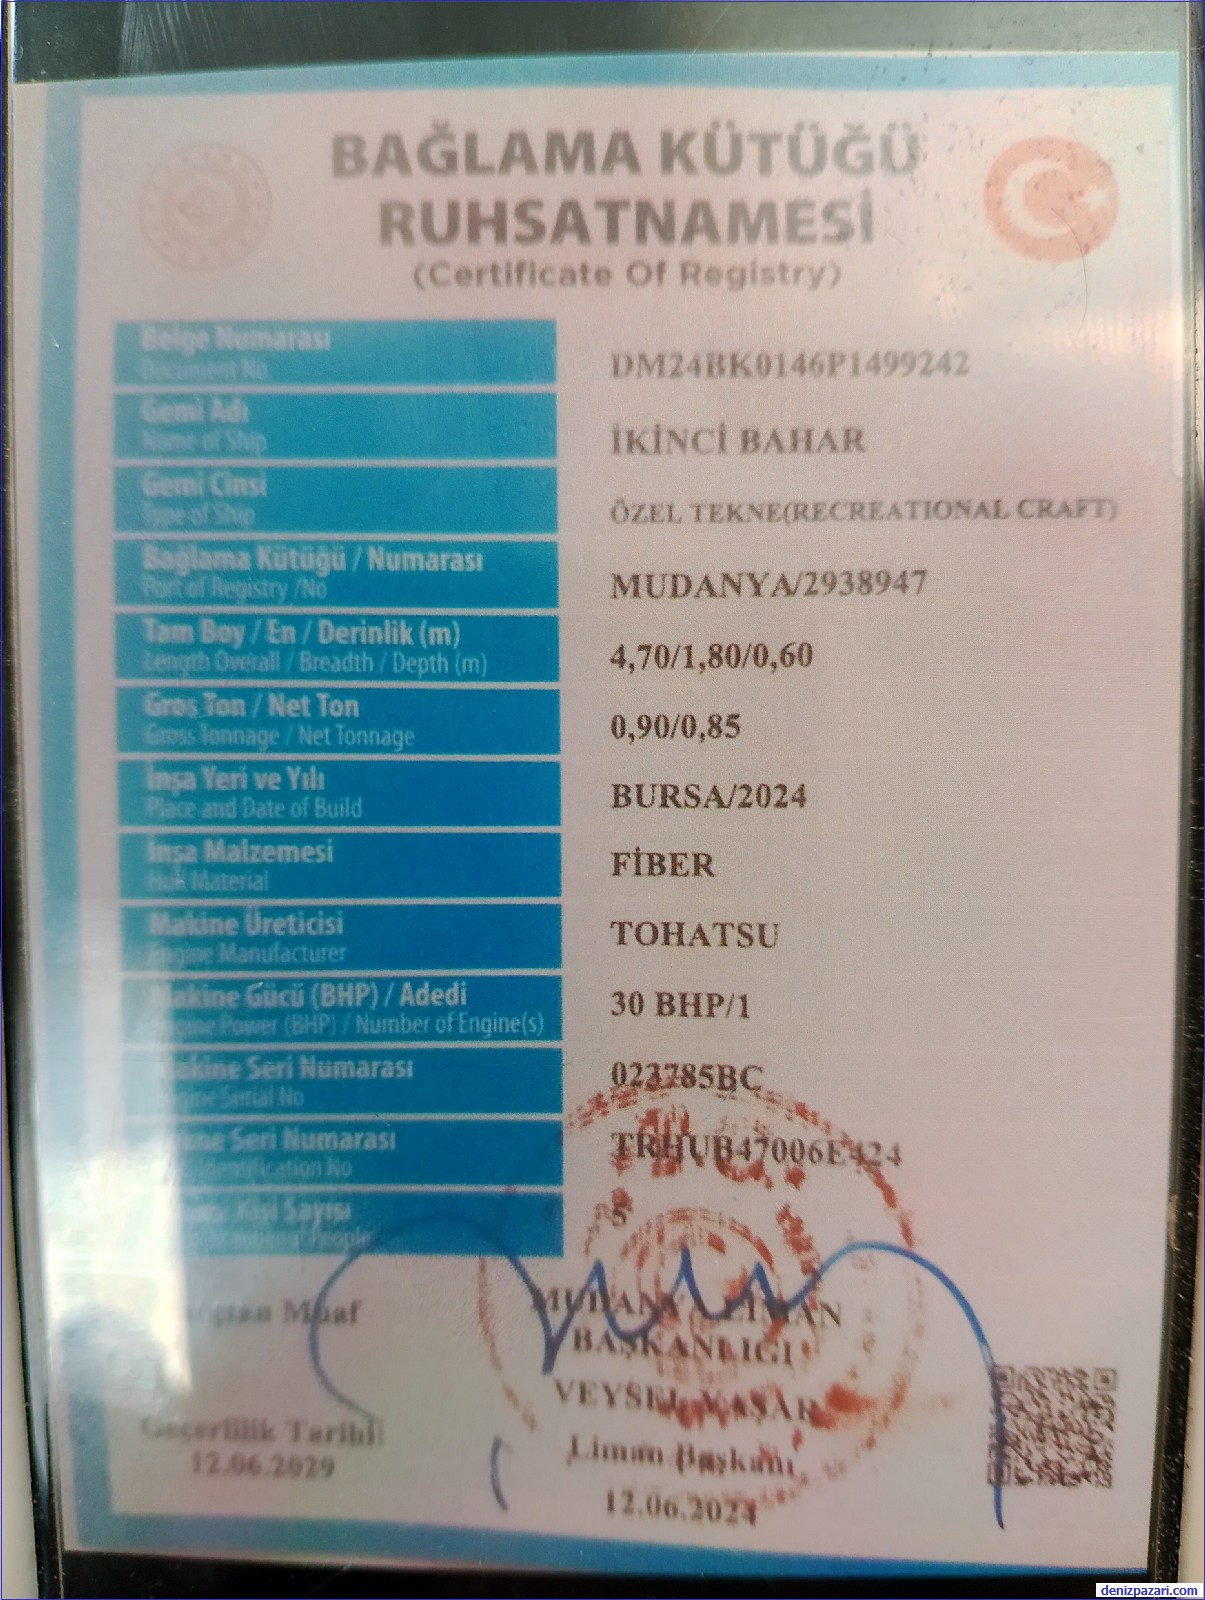 BAĞLAMA KÜTÜĞÜ
RUHSATNAMESİ
(Certificate Of Registry)
Belge Numarası
Document No.
DM24BK0146P1499242
Gemi Adı
Name of Ship
İKİNCİ BAHAR
Gemi Cinsi
Type of Ship
ÖZEL TEKNE(RECREATIONAL CRAFT)
Bağlama Kütüğü / Numarası
Port of Registry /No
MUDANYA/2938947
Tam Boy / En / Derinlik (m)
Length Overall / Breadth / Depth (m)
4,70/1,80/0,60
Gros Ton / Net Ton
Gross Tonnage / Net Tonnage
0,90/0,85
İnşa Yeri ve Yılı
Place and Date of Build
BURSA/2024
İnşa Malzemesi
Hull Material
FİBER
Makine Üreticisi
Engine Manufacturer
TOHATSU
Makine Gücü (BHP) / Adedi
Engine Power (BHP) / Number of Engine(s)
30 BHP/1
Makine Seri Numarası
Engine Serial No
023785BC
Seri Numarası
Identification No
TRHUB47006E424
Kişi Sayısı
People
5
Muaf
MUDANYA LİMAN
BAŞKANLIĞI
VEYSEL YAŞAR
Liman Başkanı
12.06.2024
Geçerlilik Tarihi:
12.06.2029
denizpazari.com